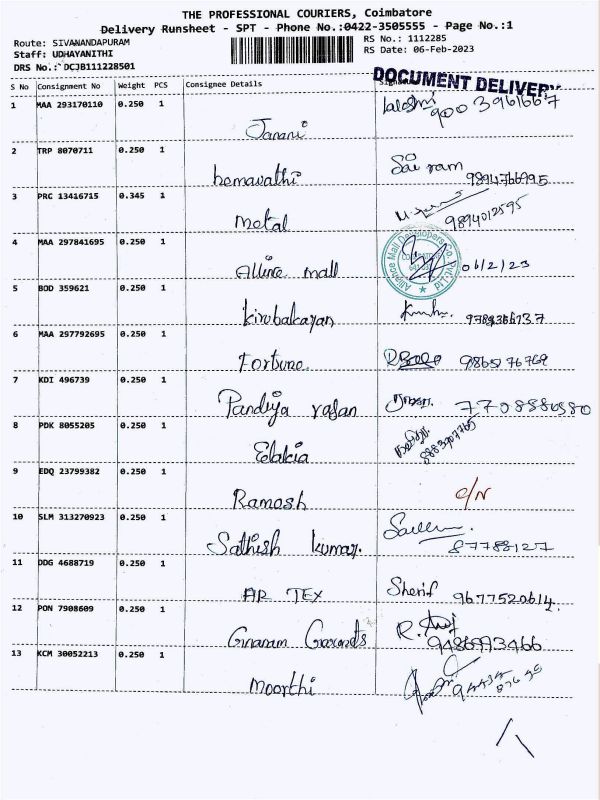 THE PROFESSIONAL COURIERS, Coimbatore
Delivery Runsheet - SPT - Phone No.:0422-3505555 - Page No.:1
Route: SIVANANDAPURAM
RS No.: 1112285
Staff: UDHAYANITHI
RS Date: 06-Feb-2023
DRS No.: DCJB111228501
DOCUMENT DELIVERY
S No Consignment No Weight PCS Consignee Details
1 MAA 293170110 0.250 1
Janani
2 TRP 8070711 0.250 1 Sai ram
hemavathi 9894766995
3 PRC 13416715 0.345 1
Metal 9894012595
4 MAA 297841695 0.250 1
Alliance Mall Developers Co. Pvt. Ltd.
Alline mall 06/2/23
5 BOD 359621 0.250 1
kirubakaran
6 MAA 297792695 0.250 1
Fortune.
7 KDI 496739 0.250 1
Pandiya rasan 7708880580
8 PDK 8055205 0.250 1
Elakia
9 EDQ 23799382 0.250 1
Ramesh c/N
10 SLM 313270923 0.250 1
Sathish kumar. 87788127
11 DDG 4688719 0.250 1
AR TEX Sherif 9677520614.
12 PON 7908609 0.250 1
9486993466
13 KCM 30052213 0.250 1
Moorthi